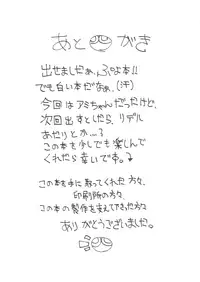 あとがき
出せましたぁぁ、ぷよ本!!
でも白い本だなぁぁ。(汗)
今回はアミちゃんだったけど、
次回出すとしたら、リデル
あたりとか…?
この本を少しでも楽しんで
くれたら幸いです。
この本を手に取ってくれた方々、
印刷所の方々、
この本の製作を支えてできた方々
ありがとうございました。